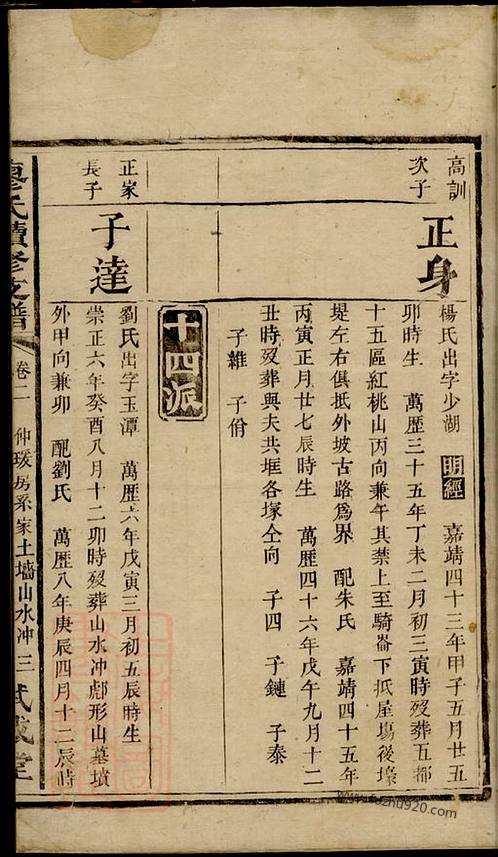 高訓
次子
正身
楊氏出字少湖 明經 嘉靖四十三年甲子五月廿五
卯時生 萬歷三十五年丁未二月初三寅時歿葬五都
十五區紅桃山丙向兼午其禁上至騎崙下抵屋塲後壕
堤左右俱抵外坡古路爲界 配朱氏 嘉靖四十五年
丙寅正月廿七辰時生 萬歷四十六年戊午九月十二
丑時歿葬與夫共堆各塚仝向 子四 子鏈 子泰
子維 子俏
十四派
正家
長子
子達
劉氏出字玉潭 萬歷六年戊寅三月初五辰時生
崇正六年癸酉八月十二卯時歿葬山水冲邮形山墓墳
外甲向兼卯 配劉氏 萬歷八年庚辰四月十二辰時
廖氏續修支譜 卷二 仲瑗房系家土墙山水冲 三 武威堂